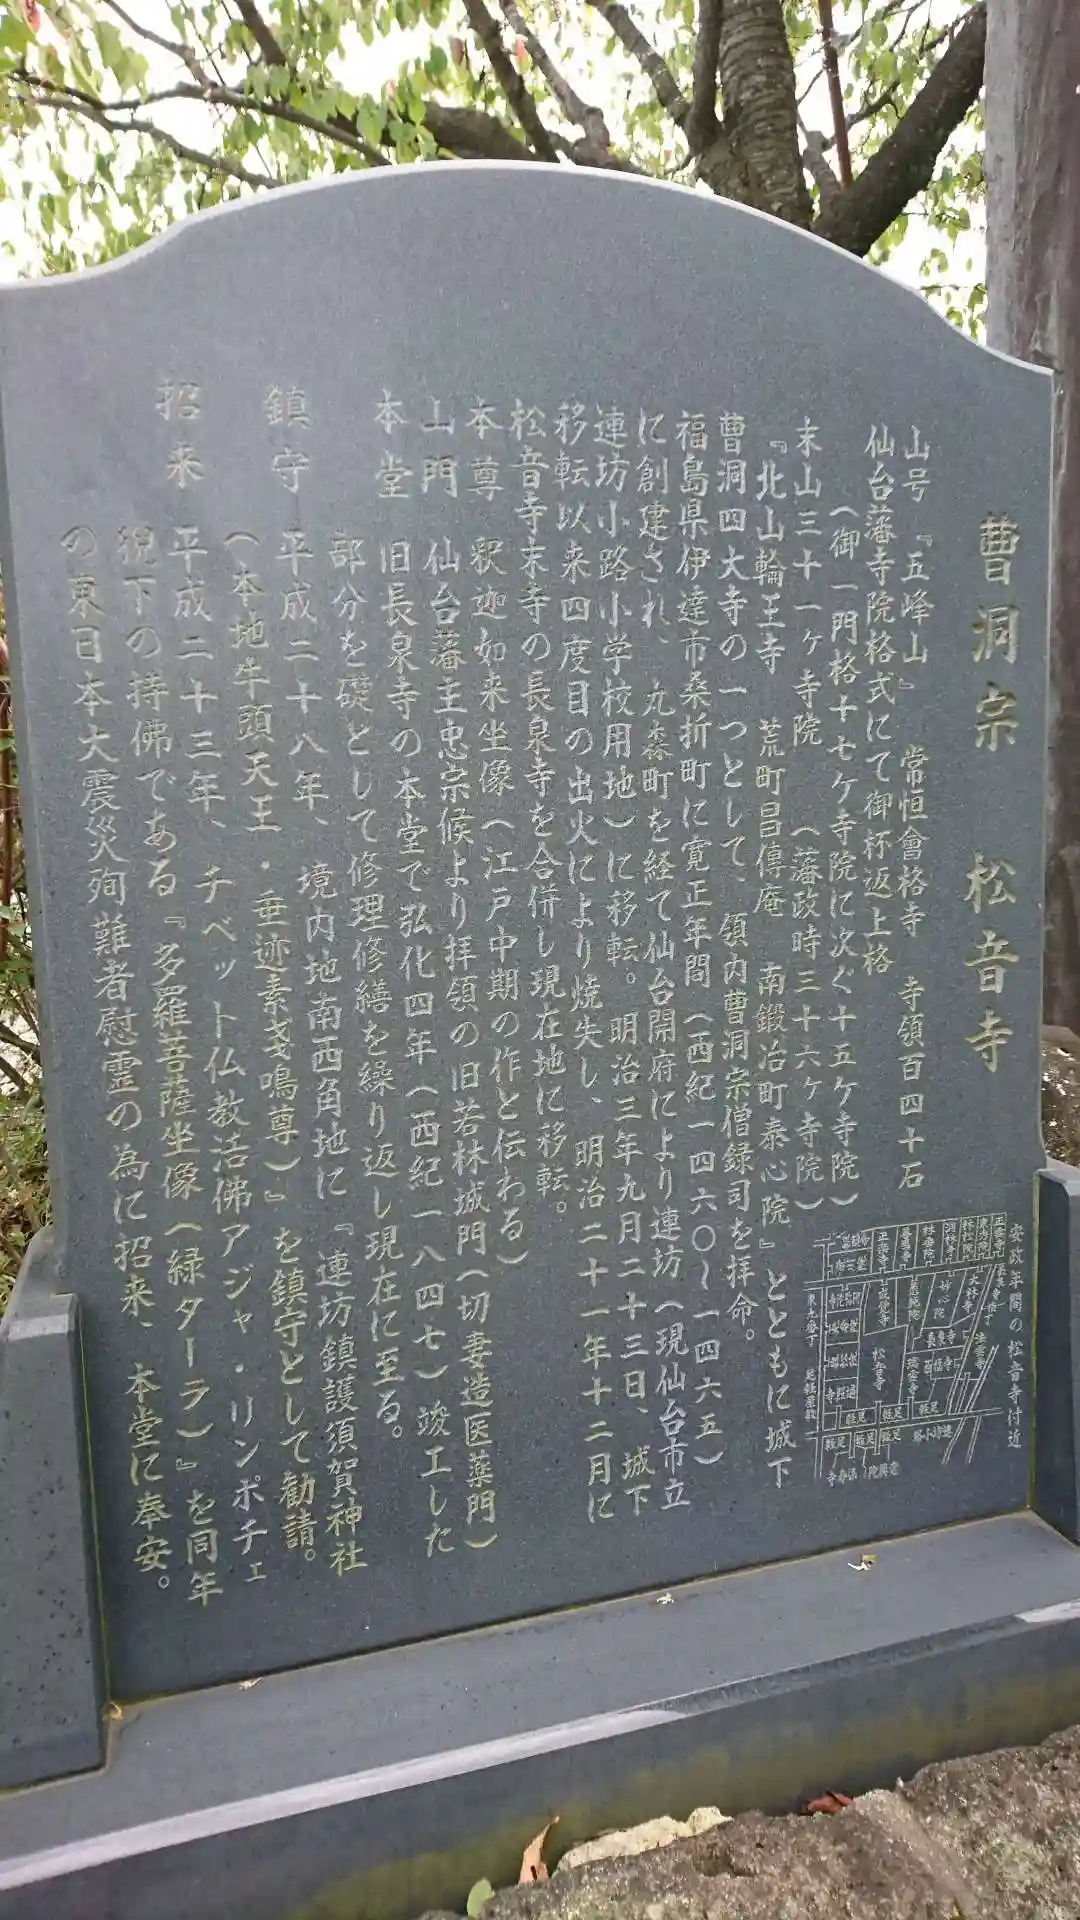 曹洞宗 松音寺
山号 『五峰山』 常恒會格寺 寺領百四十石
仙台藩寺院格式にて御杯返上格
(御一門格十七ケ寺院に次ぐ十五ケ寺院)
末山三十一ヶ寺院 (藩政時三十六ヶ寺院)
『北山輪王寺 荒町昌傳庵 南鍛冶町泰心院』とともに城下
曹洞四大寺の一つとして、領内曹洞宗僧録司を拝命。
福島県伊達市桑折町に寛正年間(西紀一四六〇～一四六五)
に創建され、丸森町を経て仙台開府により連坊(現仙台市立
連坊小路小学校用地)に移転。明治三年九月二十三日、城下
移転以来四度目の出火により焼失し、明治二十一年十二月に
松音寺末寺の長泉寺を合併し現在地に移転。
本尊 釈迦如来坐像(江戸中期の作と伝わる)
山門 仙台藩主忠宗候より拝領の旧若林城門(切妻造医薬門)
本堂 旧長泉寺の本堂で弘化四年(西紀一八四七)竣工した
部分を礎として修理修繕を繰り返し現在に至る。
鎮守 平成二十八年、境内地南西角地に『連坊鎮護須賀神社
(本地牛頭天王・垂迹素戔鳴尊)』を鎮守として勧請。
招来 平成二十三年、チベット仏教活佛アジャ・リンポチェ
猊下の持佛である『多羅菩薩坐像(緑ターラ)』を同年
の東日本大震災殉難者慰霊の為に招来、本堂に奉安。
安政年間の松音寺付近
正雲寺
東秀院
林松院
洞林寺
林香院
正楽寺
大林寺
妙心院
成覚寺
法雲寺
長泉寺
松音寺
東九番丁
足軽
足軽
足軽
足軽
足軽
足軽